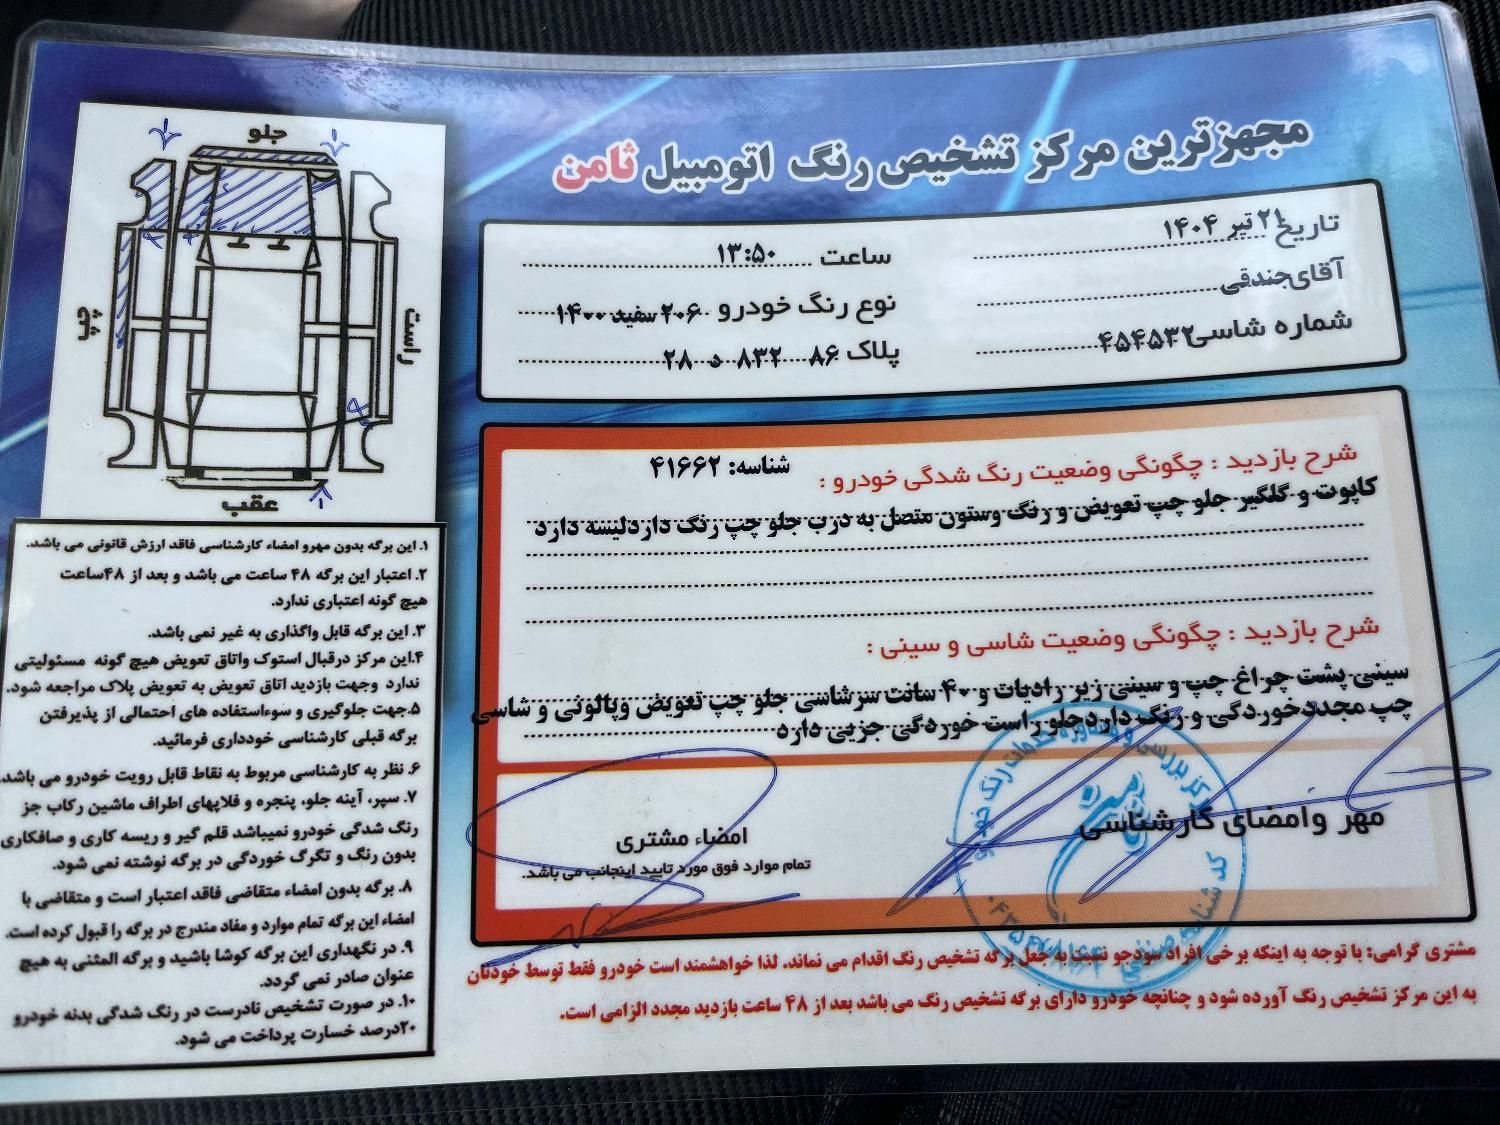 مجهزترین مرکز تشخیص رنگ اتومبیل ثامن
تاریخ ۲۱ تیر ۱۴۰۴
ساعت ۱۳:۵۰
آقای جندقی
نوع رنگ خودرو ۲۰۶ سفید ۱۴۰۰
شماره شاسی ۴۵۴۵۳۲
پلاک ۸۶ ۸۳۲ ه ۲۸
شرح بازدید : چگونگی وضعیت رنگ شدگی خودرو :
شناسه: ۴۱۶۶۲
کاپوت و گلگیر جلو چپ تعویض و رنگ وستون متصل به درب جلو چپ رنگ داردلیسه دارد
شرح بازدید : چگونگی وضعیت شاسی و سینی :
سینی پشت چراغ چپ و سینی زیر رادیات و ۴۰ سانت سرشاسی جلو چپ تعویض وپالوئی و شاسی
چپ مجددخوردگی و رنگ داردجلو راست خوردگی جزیی دارد
مهر وامضای کارشناسی
امضاء مشتری
تمام موارد فوق مورد تایید اینجانب می باشد.
مشتری گرامی: با توجه به اینکه برخی افراد سودجو نسبت به جعل برگه تشخیص رنگ اقدام می نماند. لذا خواهشمند است خودرو فقط توسط خودتان
به این مرکز تشخیص رنگ آورده شود و چنانچه خودرو دارای برگه تشخیص رنگ می باشد بعد از ۴۸ ساعت بازدید مجدد الزامی است.
جلو
چپ
راست
عقب
۱. این برگه بدون مهرو امضاء کارشناسی فاقد ارزش قانونی می باشد.
۲. اعتبار این برگه ۴۸ ساعت می باشد و بعد از ۴۸ساعت
هیچ گونه اعتباری ندارد.
۳. این برگه قابل واگذاری به غیر نمی باشد.
۴.این مرکز درقبال استوک واتاق تعویض هیچ گونه مسئولیتی
ندارد وجهت بازدید اتاق تعویض به تعویض پلاک مراجعه شود.
۵.جهت جلوگیری و سوءاستفاده های احتمالی از پذیرفتن
برگه قبلی کارشناسی خودداری فرمائید.
۶. نظر به کارشناسی مربوط به نقاط قابل رویت خودرو می باشد.
۷. سپر، آینه جلو، پنجره و فلاپهای اطراف ماشین رکاب جز
رنگ شدگی خودرو نمیباشد قلم گیر و ریسه کاری و صافکاری
بدون رنگ و تگرگ خوردگی در برگه نوشته نمی شود.
۸. برگه بدون امضاء متقاضی فاقد اعتبار است و متقاضی با
امضاء این برگه تمام موارد و مفاد مندرج در برگه را قبول کرده است.
۹. در نگهداری این برگه کوشا باشید و برگه المثنی به هیچ
عنوان صادر نمی گردد.
۱۰. در صورت تشخیص نادرست در رنگ شدگی بدنه خودرو
۲۰درصد خسارت پرداخت می شود.